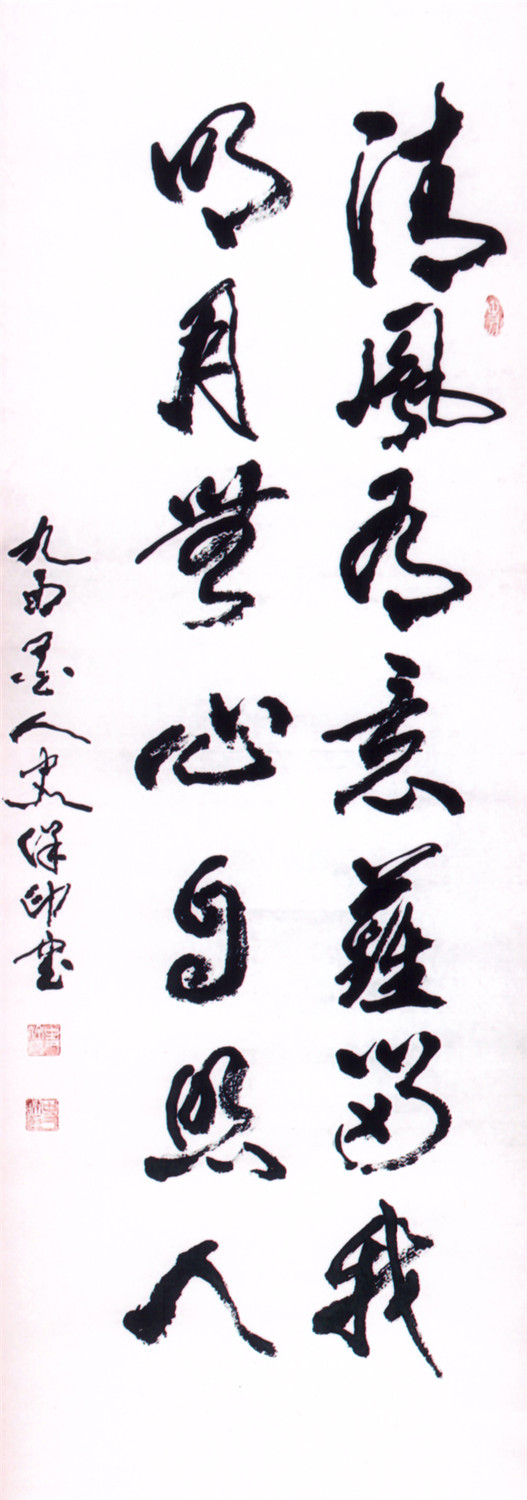 清風有意難留我
明月無心自照人
九 墨人 保印书